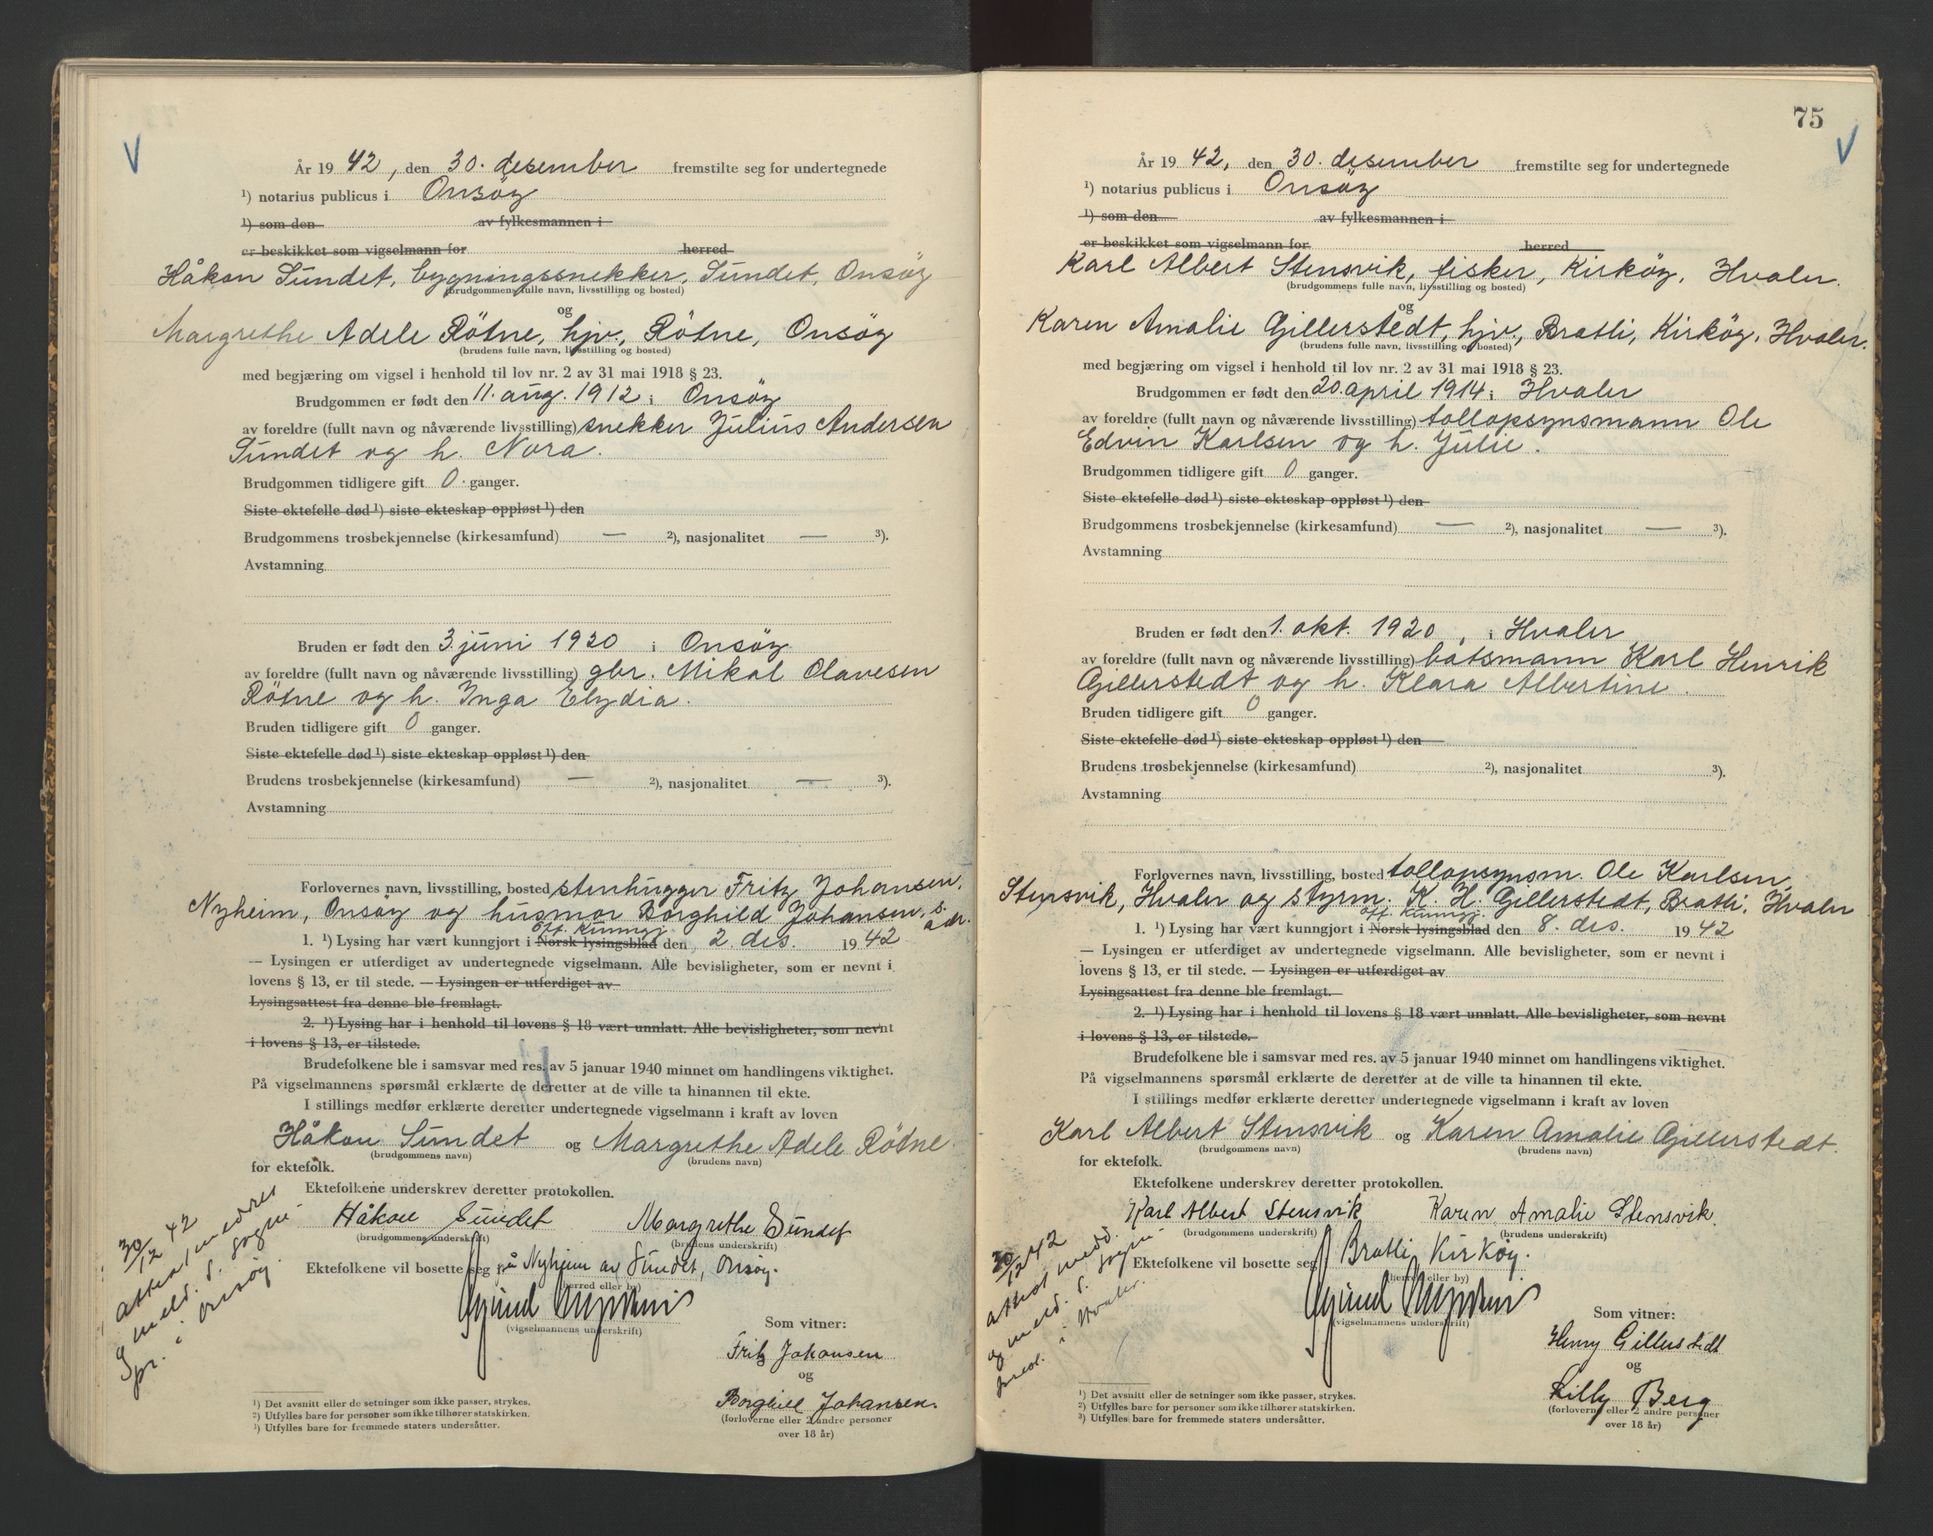 År 1942, den 30. desember fremstilte seg for undertegnede
¹) notarius publicus i Onsöy
¹) som den av fylkesmannen i
er beskikket som vigselmann for herred
Håkon Sundet, bygningssnekker, Sundet, Onsöy
(brudgommens fulle navn, livsstilling og bosted)
og
Margrethe Adele Rötne, hjv., Rötne, Onsöy
(brudens fulle navn, livsstilling og bosted)
med begjæring om vigsel i henhold til lov nr. 2 av 31 mai 1918 § 23.
Brudgommen er født den 11. aug. 1912 i Onsöy
av foreldre (fullt navn og nåværende livsstilling) snekker Julius Andersen
Sundet og h. Nora.
Brudgommen tidligere gift 0 ganger.
Siste ektefelle død ¹) siste ekteskap oppløst ¹) den
Brudgommens trosbekjennelse (kirkesamfund) — ²), nasjonalitet — ³).
Avstamning
Bruden er født den 3. juni 1920 i Onsöy
av foreldre (fullt navn og nåværende livsstilling) gbr. Mikal Olavesen
Rötne og h. Inga Elydia.
Bruden tidligere gift 0 ganger.
Siste ektefelle død ¹) siste ekteskap oppløst ¹) den
Brudens trosbekjennelse (kirkesamfund) — ²), nasjonalitet — ³).
Avstamning
Forlovernes navn, livsstilling, bosted stenhugger Fritz Johansen,
Nyheim, Onsöy og husmor Borghild Johansen, s. adr.
off. kunngj.
1. ¹) Lysing har vært kunngjort i Norsk lysingsblad den 2. des. 1942
— Lysingen er utferdiget av undertegnede vigselmann. Alle bevisligheter, som er nevnt i
lovens § 13, er til stede. — Lysingen er utferdiget av
Lysingsattest fra denne ble fremlagt.
2. ¹) Lysing har i henhold til lovens § 18 vært unnlatt. Alle bevisligheter, som nevnt
i lovens § 13, er tilstede.
Brudefolkene ble i samsvar med res. av 5 januar 1940 minnet om handlingens viktighet.
På vigselmannens spørsmål erklærte de deretter at de ville ta hinannen til ekte.
I stillings medfør erklærte deretter undertegnede vigselmann i kraft av loven
Håkon Sundet og Margrethe Adele Rötne
(brudgommens navn) (brudens navn)
for ektefolk.
Ektefolkene underskrev deretter protokollen.
Håkon Sundet Margrethe Sundet
(brudgommens underskrift) (brudens underskrift)
Ektefolkene vil bosette seg i på Nyheim av Sundet, Onsøy.
(herred eller by)
(vigselmannens underskrift)
Som vitner:
Fritz Johansen
og
Borghill Johansen.
(forloverne eller 2 andre personer
over 18 år)
30/12 42
meld. s. sogne
pr. i Onsøy.
¹) Det avsnitt eller de setninger som ikke passer, strykes.
²) Utfylles bare for personer som ikke tilhører statskirken.
³) Utfylles bare for fremmede staters undersåtter.
75
År 1942, den 30. desember fremstilte seg for undertegnede
¹) notarius publicus i Onsöy
¹) som den av fylkesmannen i
er beskikket som vigselmann for herred
Karl Albert Stensvik, fisker, Kirköy, Hvaler.
(brudgommens fulle navn, livsstilling og bosted)
og
Karen Amalie Gillerstedt, hjv., Bratli, Kirköy, Hvaler.
(brudens fulle navn, livsstilling og bosted)
med begjæring om vigsel i henhold til lov nr. 2 av 31 mai 1918 § 23.
Brudgommen er født den 20. april 1914 i Hvaler
av foreldre (fullt navn og nåværende livsstilling) tollopsynsmann Ole
Edvin Karlsen og h. Julie.
Brudgommen tidligere gift 0 ganger.
Siste ektefelle død ¹) siste ekteskap oppløst ¹) den
Brudgommens trosbekjennelse (kirkesamfund) — ²), nasjonalitet — ³).
Avstamning
Bruden er født den 1. okt. 1920, i Hvaler
av foreldre (fullt navn og nåværende livsstilling) båtsmann Karl Henrik
Gillerstedt og h. Klara Albertine.
Bruden tidligere gift 0 ganger.
Siste ektefelle død ¹) siste ekteskap oppløst ¹) den
Brudens trosbekjennelse (kirkesamfund) ²), nasjonalitet ³).
Avstamning
Forlovernes navn, livsstilling, bosted tollopsynsm. Ole Karlsen,
Stensvik, Hvaler og styrm. K. H. Gillerstedt, Bratli, Hvaler
off. kunngj.
1. ¹) Lysing har vært kunngjort i Norsk lysingsblad den 8. des. 1942
— Lysingen er utferdiget av undertegnede vigselmann. Alle bevisligheter, som er nevnt i
lovens § 13, er til stede. — Lysingen er utferdiget av
Lysingsattest fra denne ble fremlagt.
2. ¹) Lysing har i henhold til lovens § 18 vært unnlatt. Alle bevisligheter, som nevnt
i lovens § 13, er tilstede.
Brudefolkene ble i samsvar med res. av 5 januar 1940 minnet om handlingens viktighet.
På vigselmannens spørsmål erklærte de deretter at de ville ta hinannen til ekte.
I stillings medfør erklærte deretter undertegnede vigselmann i kraft av loven
Karl Albert Stensvik og Karen Amalie Gillerstedt.
(brudgommens navn) (brudens navn)
for ektefolk.
Ektefolkene underskrev deretter protokollen.
Karl Albert Stensvik Karen Amalie Stensvik.
(brudgommens underskrift) (brudens underskrift)
Ektefolkene vil bosette seg i Bratli, Kirköy.
(herred eller by)
(vigselmannens underskrift)
Som vitner:
Henry Gillerstedt
og
Lilly Berg
(forloverne eller 2 andre personer
over 18 år)
30/12 42
attest medd.
og meld. s. sogne
i Hvaler.
¹) Det avsnitt eller de setninger som ikke passer, strykes.
²) Utfylles bare for personer som ikke tilhører statskirken.
³) Utfylles bare for fremmede staters undersåtter.